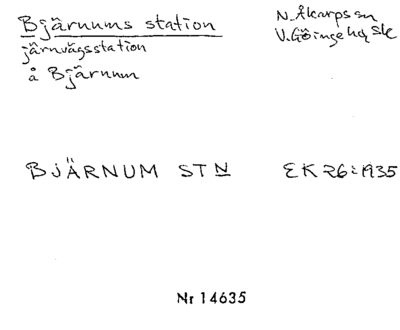 Bjärnums station
N. Åkarps sn
järnvägsstation
V. Göinge hd Sk
å Bjärnum
BJÄRNUM STN
EK 26:1935
Nr 14635